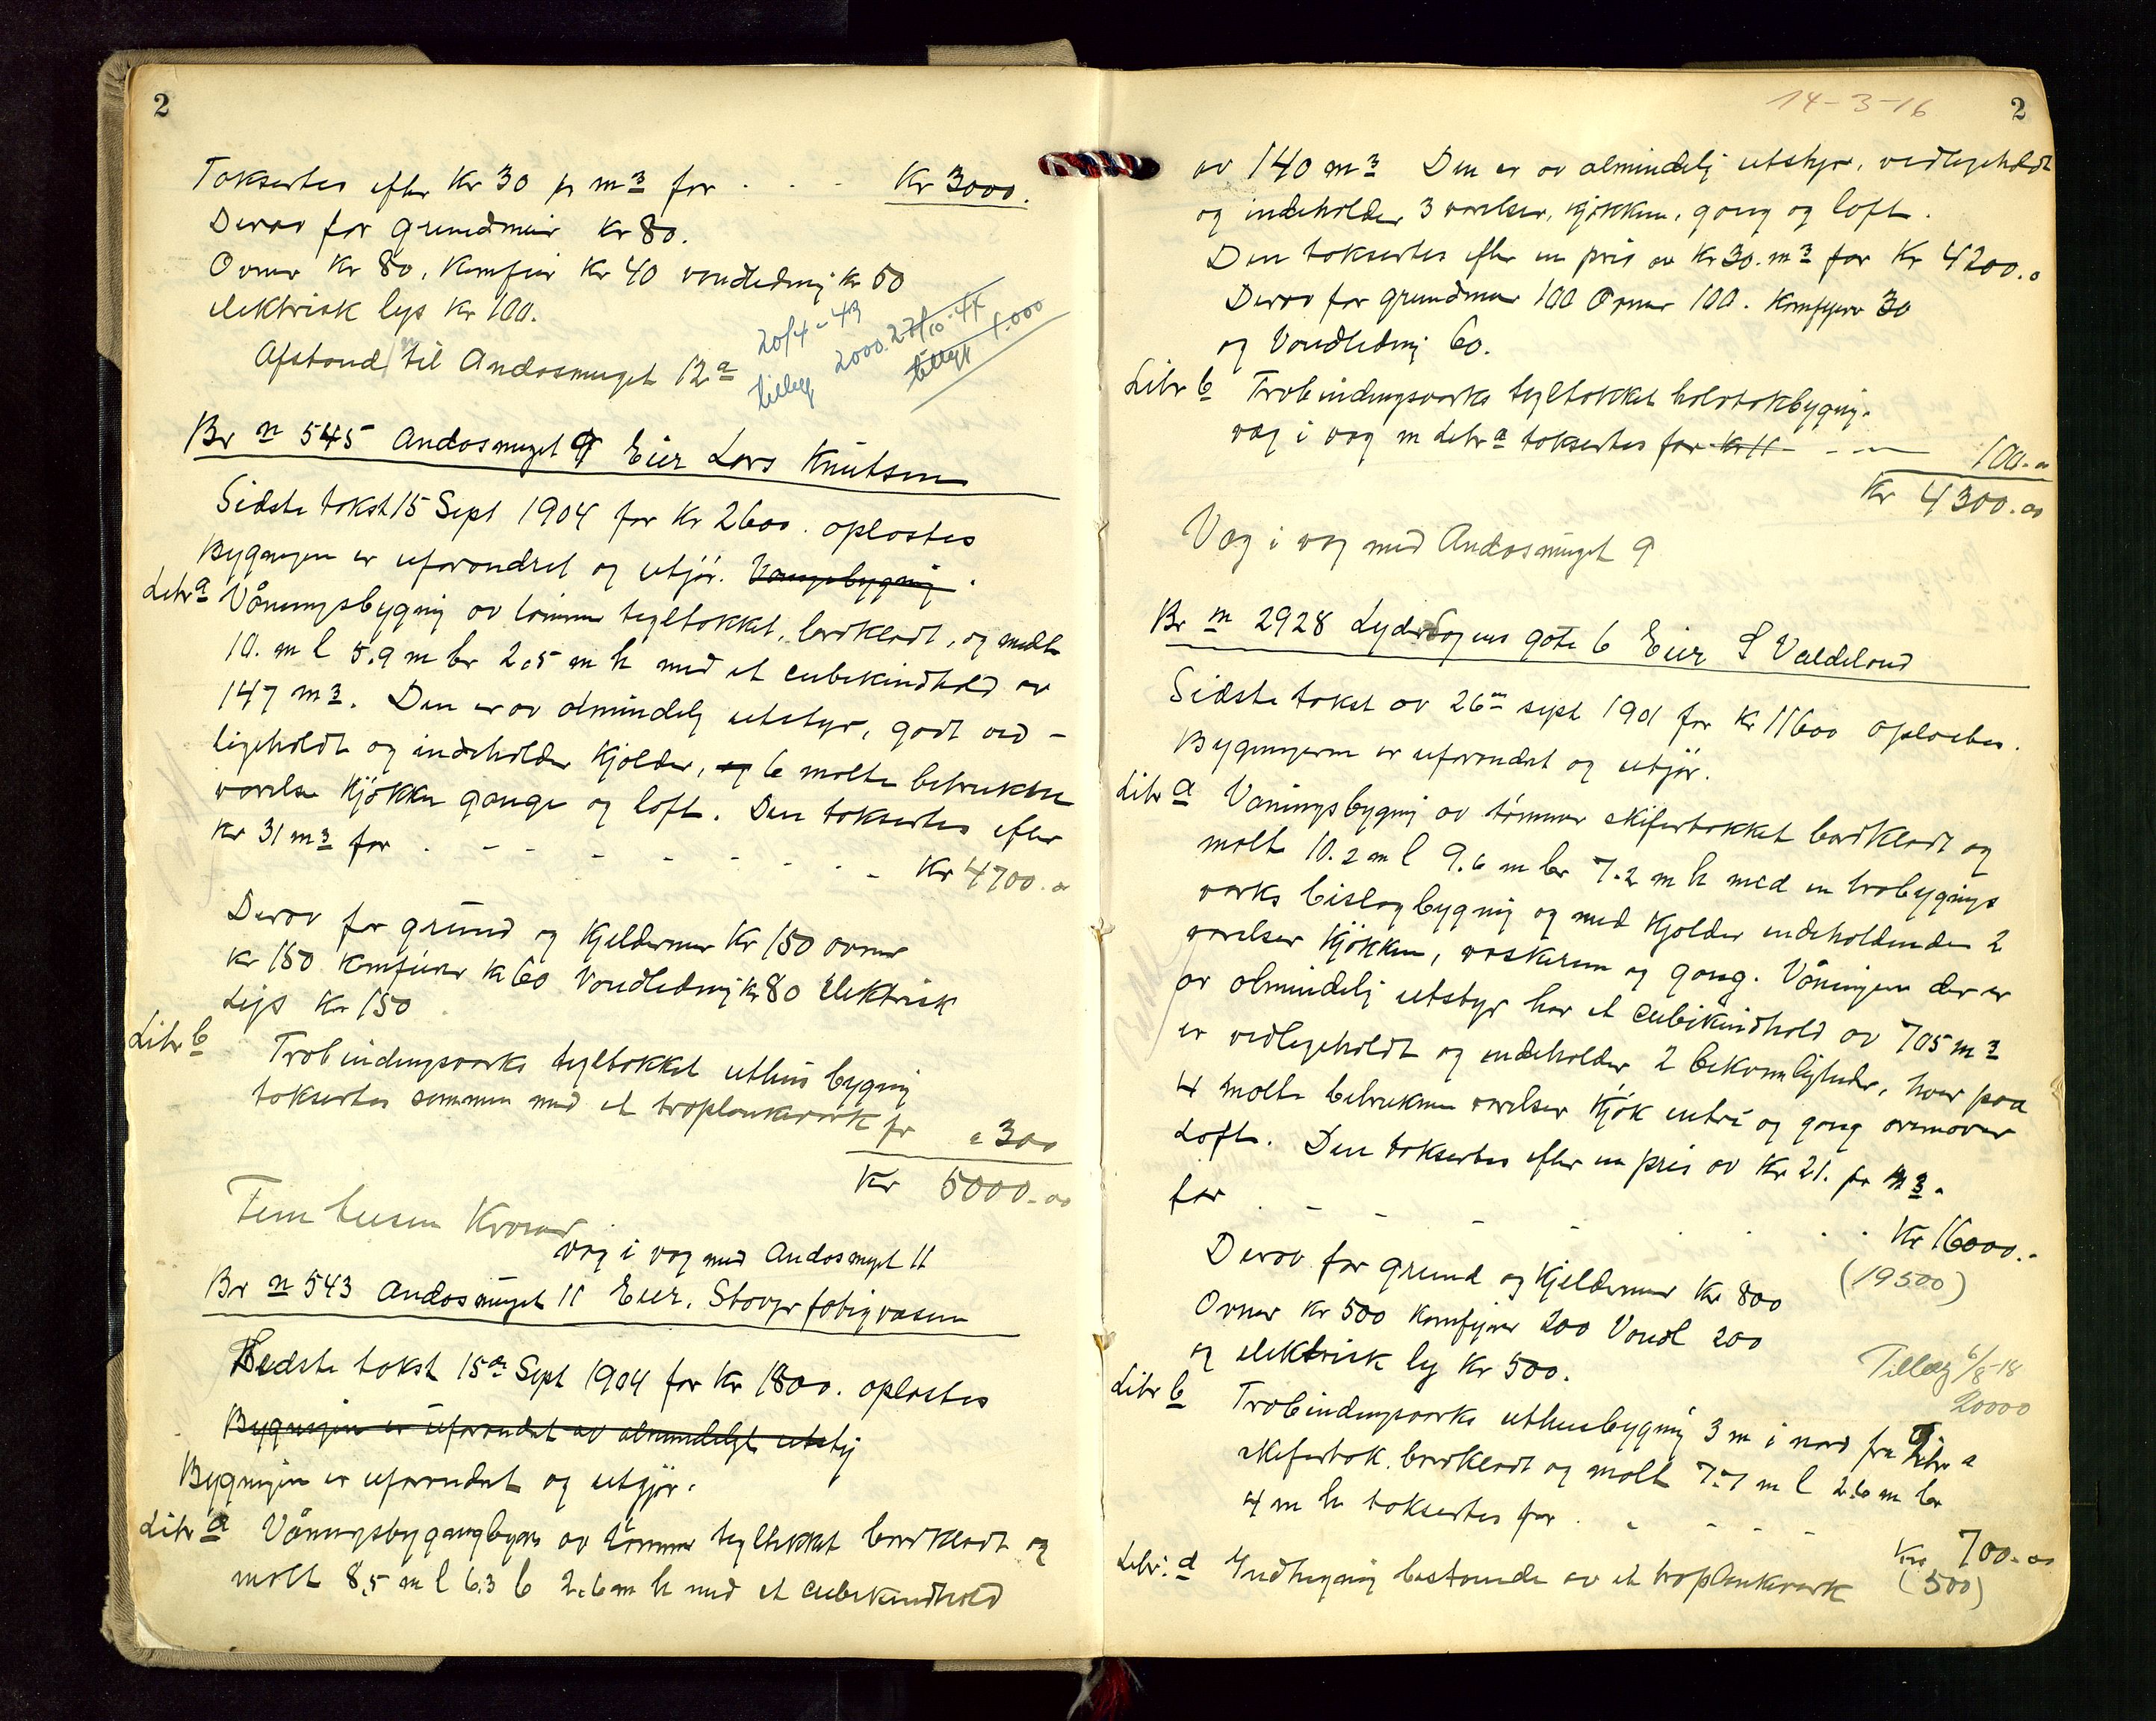 2
Taksertes efter Kr 30 pr m3 for . . - Kr 3000.
Derav for grundmur Kr 80.
Ovner Kr 80, Komfur Kr 40 vandledning Kr 50
elektrisk lys Kr 100.
Afstand til Andasmuget 12a
20/4-43 2000. 27/10-44
tillegg tillegg 1.000
Br n 545 Andasmuget 9 Eier Lars Knutsen
Sidste takst 15 Sept 1904 for Kr 2600. oplæstes
Bygningen er uforandret og utjør. Vaningsbygning.
Litr a Våningsbygning av tømmer tegltækket, bordklædt, og målt
10. m l 5.9 m br 2.5 m h med et cubikindhold av
147 m3. Den er av almindelig utstyr, godt ved-
ligeholdt og indeholder Kjælder, og 6 malte betrukne
værelser Kjøkken gange og loft. Den taksertes efter
Kr 31 m3 for . - - - - - . . - Kr 4700.00
Derav for grund og Kjeldermur Kr 150 ovner
Kr 150 Komfurer Kr 60 Vandledning Kr 80 Elektrisk
Lys Kr 150
Litr b Træbindingsværks tegltækket uthusbygning
taksertes sammen med et træplankeværk for " 300
Kr 5000.00
Fem tusen Kroner
væg i væg med Andasmuget 11
Br n 543 Andasmuget 11 Eier. Stavgr fattigvæsen
Sidste takst 15de Sept 1904 for Kr 1800. oplæstes
Bygningen er uforandret av almindeligt utstyr
Bygningen er uforandret og utgjør.
Litr a Våningsbygning av tømmer tegltækket bordklædt og
målt 8.5 m l 6.3 b 2.6 m h med et cubikindhold
14-3-16
2
av 140 m3 Den er av almindelig utstyr, vedligeholdt
og indeholder 3 værelser, kjøkken, gang og loft.
Den taksertes efter en pris av Kr 30. m3 for Kr 4200.0
Derav for grundmur 100 Ovner 100. Komfyrer 30
og Vandledning 60.
Litr b Træbindingsværks tegltækket halvtakbygning.
væg i væg m Litr a taksertes for Kr 11 - - - 100.00
Kr 4300.00
Væg i væg med Andasmuget 9
Br n 2928 Lyder Sagens gate 6 Eier S Valdeland
Sidste takst av 26de sept 1901 for Kr 11600 oplæstes.
Bygningerne er uforandret og utjør.
Litr a Våningsbygning av tømmer skifertækket bordklædt og
målt 10.2 m l 9.6 m br 7.2 m h med en træbygnings
værks bislagbygning og med Kjælder indeholdende 2
værelser Kjøkken, vaskerum og gang. Våningen der er
av almindelig utstyr har et cubikindhold av 705 m3
er vedligeholdt og indeholder 2 bekvemligheder, hver paa
4 malte betrukne værelser Kjøk entre og gang ovenover
Loft. Den taksertes efter en pris av Kr 21. pr m3.
for . - - - - . . . . Kr 16000.-
(19500)
Derav for grund og Kjeldermur Kr 800
Ovner Kr 500 Komfyrer 200 Vandl 200
og elektrisk ly Kr 500.
Tillæg 6/8-18
20000
Litr b Træbindingsværks uthusbygning 3 m i nord fra Litr a
skifertæk. bordklædt og målt 7.7 m l 2.6 m br
4 m h taksertes for . - - - - Kr 700.00
(500)
Litr. d Indhegning bestaaende av et træplankeværk